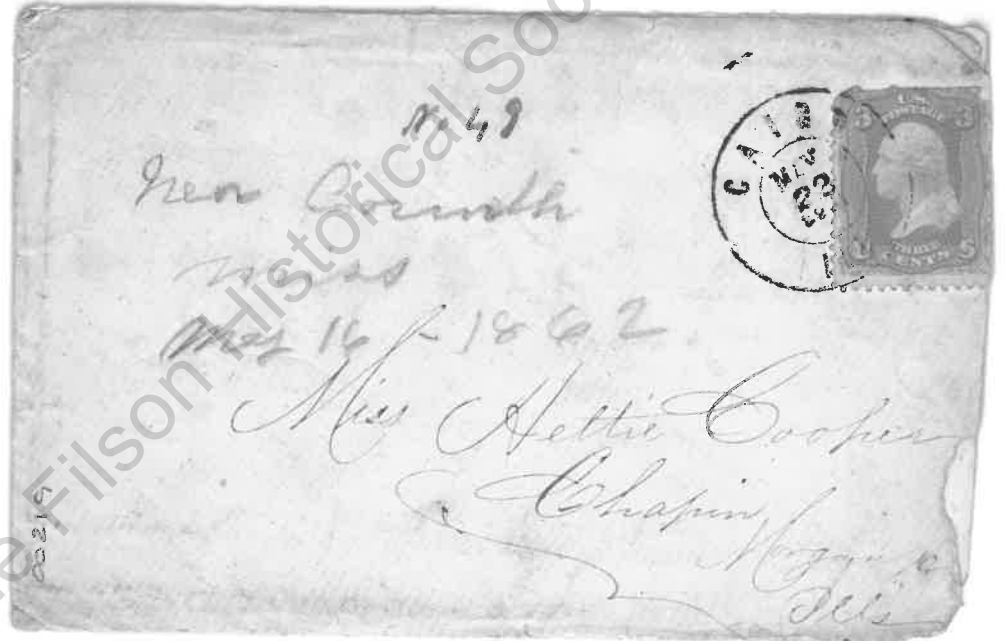 No 49
Near Corinth
Miss
May 16 - 1862
CAIRO
MAY
22
U.S. POSTAGE
3 3
THREE
CENTS
Miss Hettie Cooper
Chapin,
Morgan co
Ills
The Filson Historical Soc